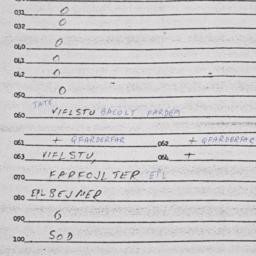 031 0
032 0
040 0
041 0
042 0
050 0
TATE
060 VIFLSTU BACOLT FARDEM
061 + QFARDERFAR 062 + QFARDERFAR
063 VIFLSTU, 064 +
070 FARFOJLTER EPL
080 EPLBEJMER
090 6
100 SOD